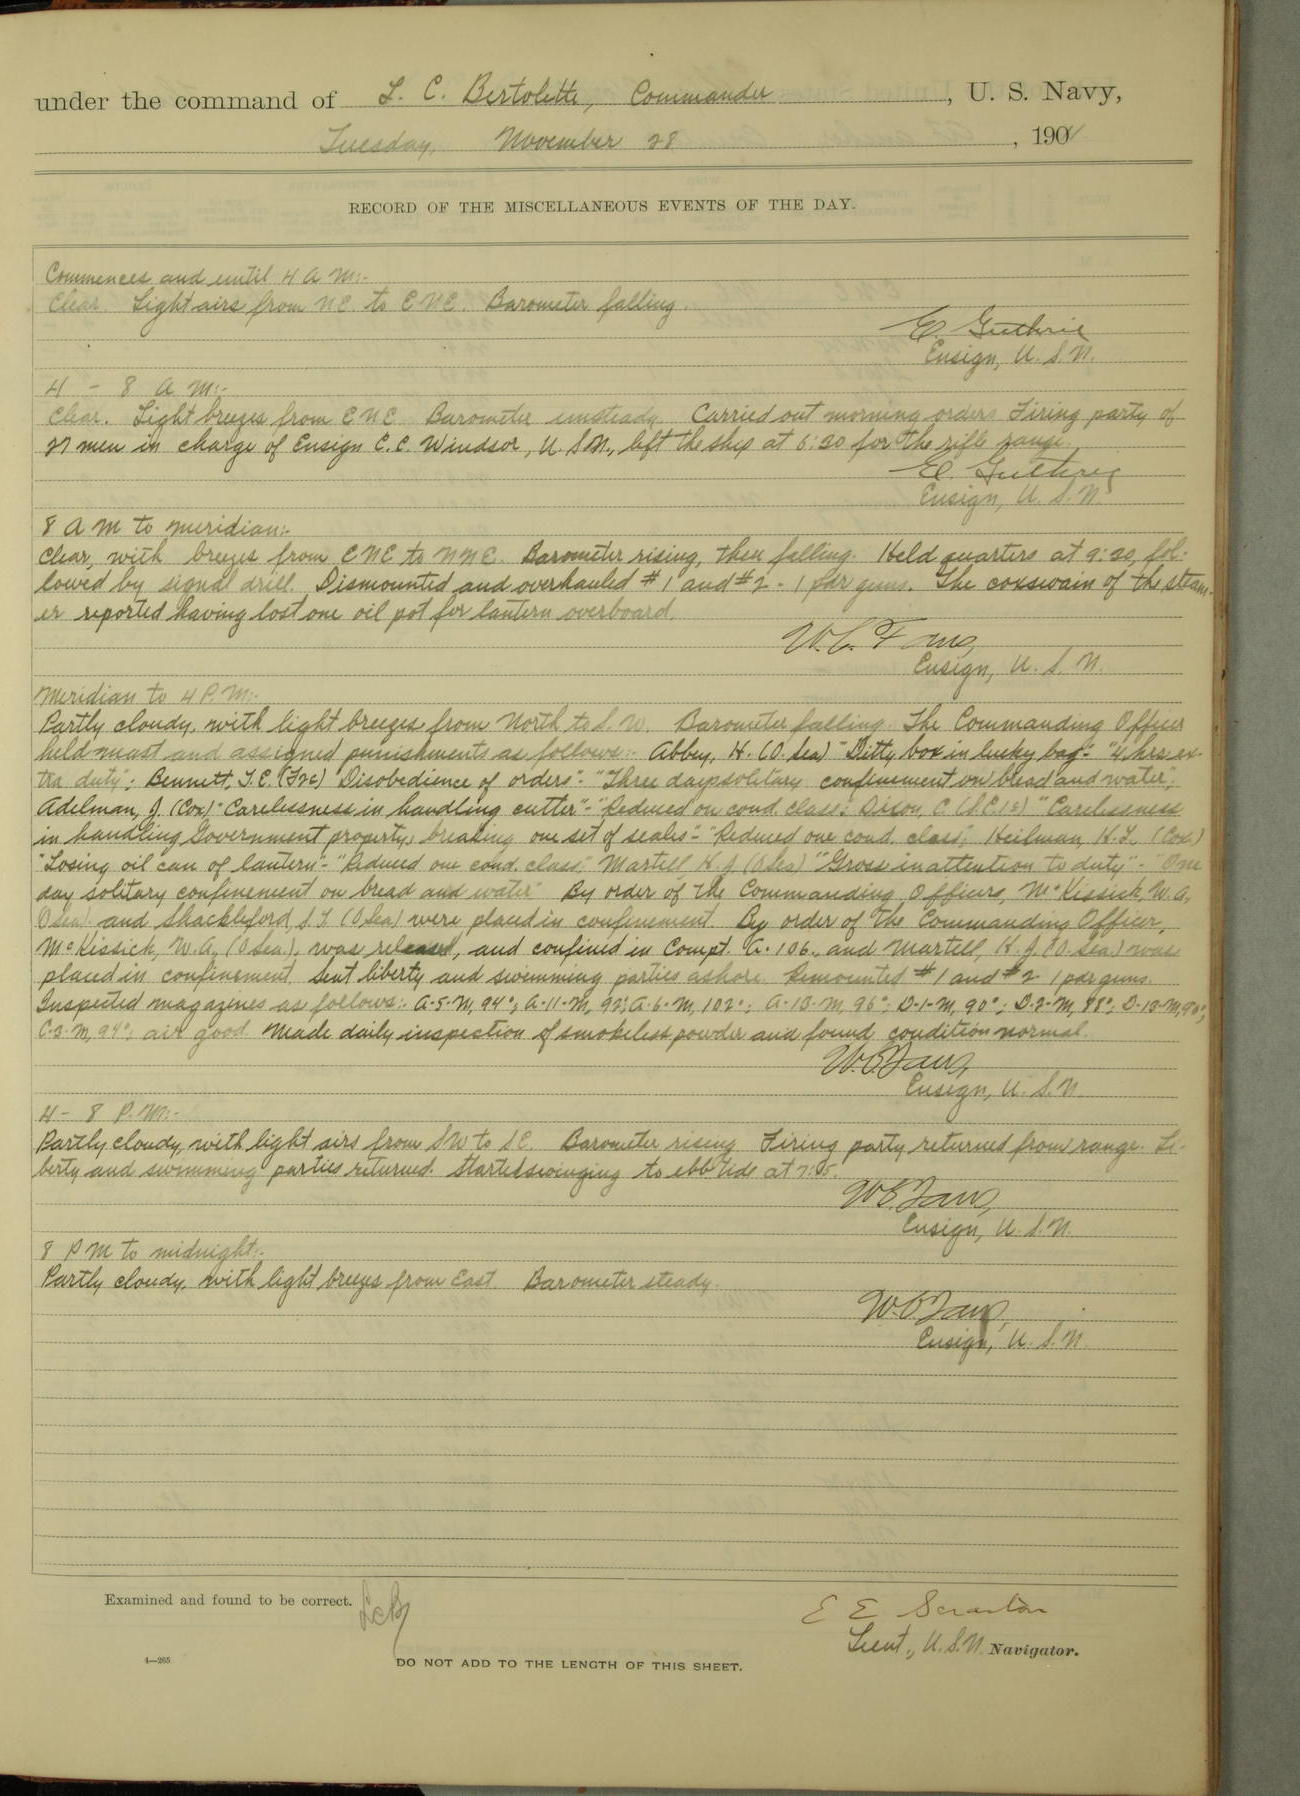 under the command of L. C. Bertolette, Commander, U. S. Navy,
Tuesday, November 28, 190
RECORD OF THE MISCELLANEOUS EVENTS OF THE DAY.
Commences and until 4 A M:-
Clear. Light airs from NE. to ENE. Barometer falling.
E. Guthrie
Ensign, U. S. N.
4 - 8 A M:-
Clear. Light breezes from ENE Barometer unsteady Carried out morning orders Firing party of
27 men in charge of Ensign C. C. Windsor, U. S. N., left the ship at 6:30 for the rifle range.
E. Guthrie
Ensign, U. S. N.
8 A M to meridian:-
Clear, with breezes from ENE to NNE. Barometer rising, then falling. Held quarters at 9:30, fol-
lowed by signal drill. Dismounted and overhauled #1 and #2 - 1 pdr guns. The coxswain of the steam-
er reported having lost one oil pot for lantern overboard.
Ensign, U. S. N.
Meridian to 4 P. M:-
Partly cloudy, with light breezes from North to S. W. Barometer falling. The Commanding Officer
held mast and assigned punishments as follows:- Abbey, H. (O. Sea) "Ditty box in lucky bag"- "4 hrs ex-
tra duty"; Bennett, T. E. (F2c) "Disobedience of orders"- "Three days solitary confinement on bread and water";
Adelman, J. (Cox) "Carelessness in handling cutter"- "Reduced on cond. class"; Dixon, C. (S.C.1c) "Carelessness
in handling Government property, breaking one set of scales"- "Reduced one cond. class"; Heilman, H. L. (Cox)
"Losing oil can of lantern"- "Reduced one cond. class"; Martell, H. J. (O Sea) "Gross inattention to duty"- "One
day solitary confinement on bread and water" By order of the Commanding Officers, McKissick, W. A.,
(O Sea) and Shackleford, S. L (O. Sea) were placed in confinement By order of the Commanding Officer,
McKissick, W. A., (O Sea), was released, and confined in Compt. A-106., and Martell, H. J. (O. Sea) was
placed in confinement. Sent liberty and swimming parties ashore. Remounted #1 and #2 1 pdr guns.
Inspected magazines as follows:- A-5-M, 94°; A-11-M, 92°; A-6-M, 102°; A-13-M, 96°; D-1-M, 90°; D-2-M, 88°; D-13-M, 90°;
C-3-M, 94°; air good. Made daily inspection of smokeless powder and found condition normal.
Ensign, U. S. N.
4 - 8 P. M:-
Partly cloudy, with light airs from SW to SE. Barometer rising Firing party returned from range. Li-
berty and swimming parties returned. Started swinging to ebb tide at 7:05.
Ensign, U. S. N.
8 P M to midnight:-
Partly cloudy, with light breezes from East. Barometer steady.
Ensign, U. S. N.
Examined and found to be correct. LCB
E E Scranton
Lieut., U. S. N. Navigator.
4—265
DO NOT ADD TO THE LENGTH OF THIS SHEET.